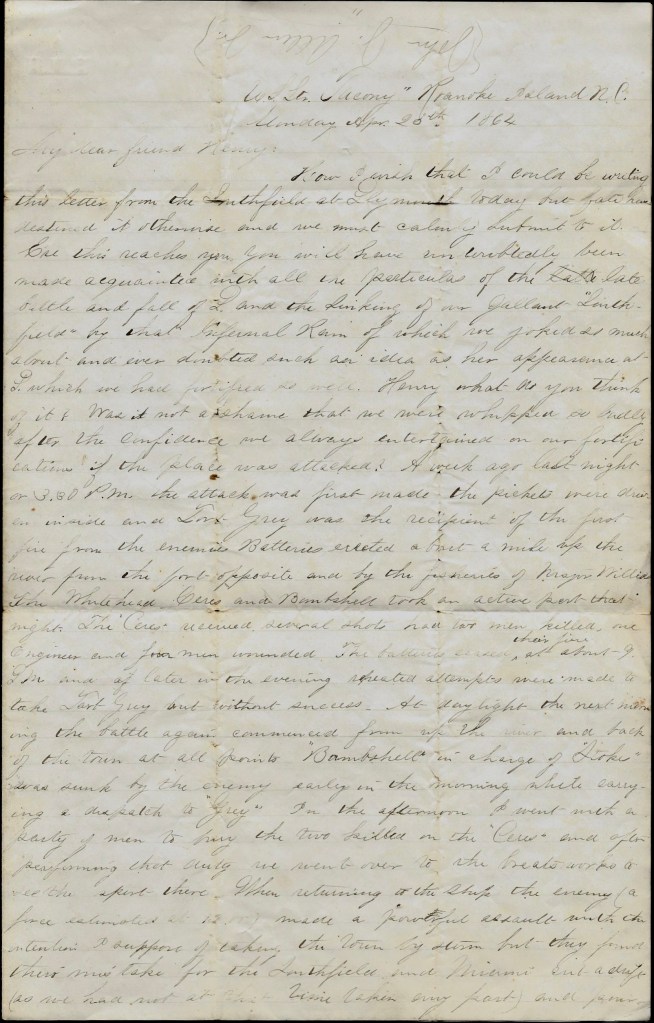 U.S. Str. "Tacony" Roanoke Island N.C.
Monday Apr. 25th 1864
My dear friend Henry:
How I wish that I could be writing
this letter from the Southfield at Plymouth today but fate has
destined it otherwise and we must calmly submit to it.
Ere this reaches you you will have undoubtedly been
made acquainted with all the particulars of the late
battle and fall of P. and the sinking of our gallant "South-
field" by that Infernal Ram of which we joked so much
about and ever doubted such an idea as her appearance at
P. which we had fortified so well. Henry what do you think
of it & Was it not a shame that we were whipped so
after the confidence we always entertained on our fortifi-
cations if the place was attacked? A week ago last night
or 5.30 P.M. the attack was first made the pickets were driv-
en inside and Fort Grey was the recipient of the first
fire from the enemies Batteries erected about a mile up the
river from the fort opposite and by the fisheries of Major Willis
The Whitehead, Ceres and Bombshell took an active part that
night. The "Ceres" received several shots had two men killed, one
Engineer and four men wounded. The batteries ceased their fire at about 9
P.M. and at later in the evening repeated attempts were made to
take Fort Grey but without success. At daylight the next morn-
ing the battle again commenced from up the river and back
of the town at all points "Bombshell" in charge of "Stokes"
was sunk by the enemy early in the morning while carry-
ing a dispatch to "Grey" In the afternoon I went with a
party of men to bury the two killed on the "Ceres" and after
performing that duty we went over to the breastworks to
see the sport there. When returning to the ship the enemy (a
force estimated at ) made a powerful assault with the
intention I suppose of taking the town by storm but they found
their mistake for the Southfield and Miami
(as we had not at that time taken any part) and